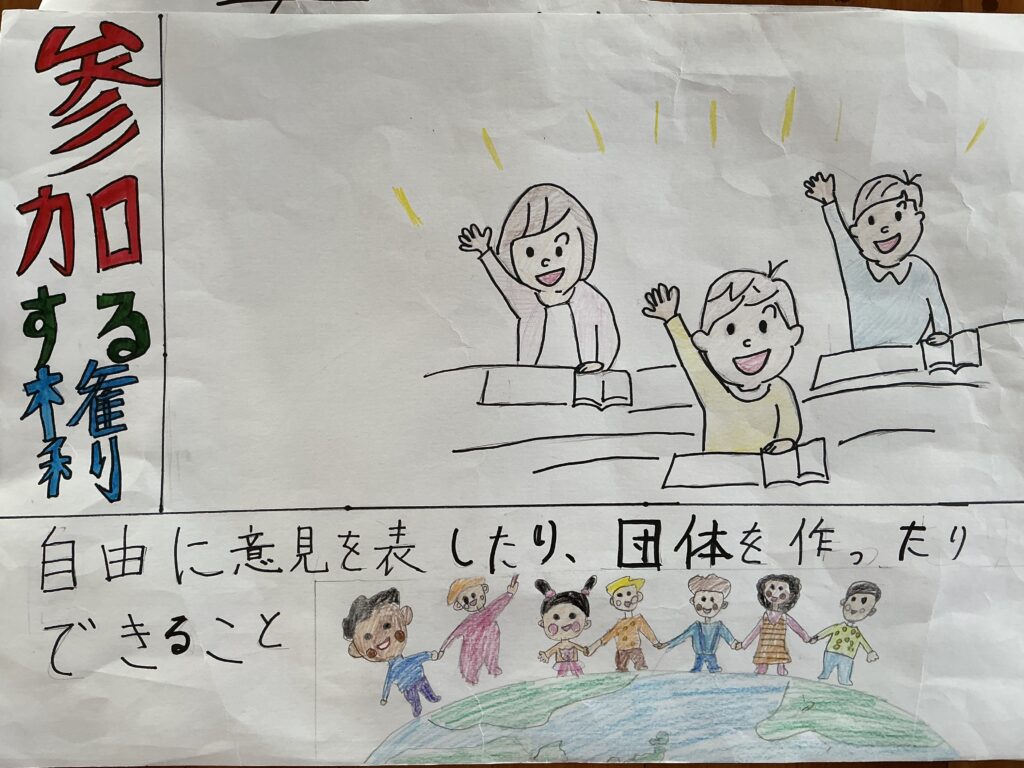 参加する権利
自由に意見を表したり、団体を作ったり
できること